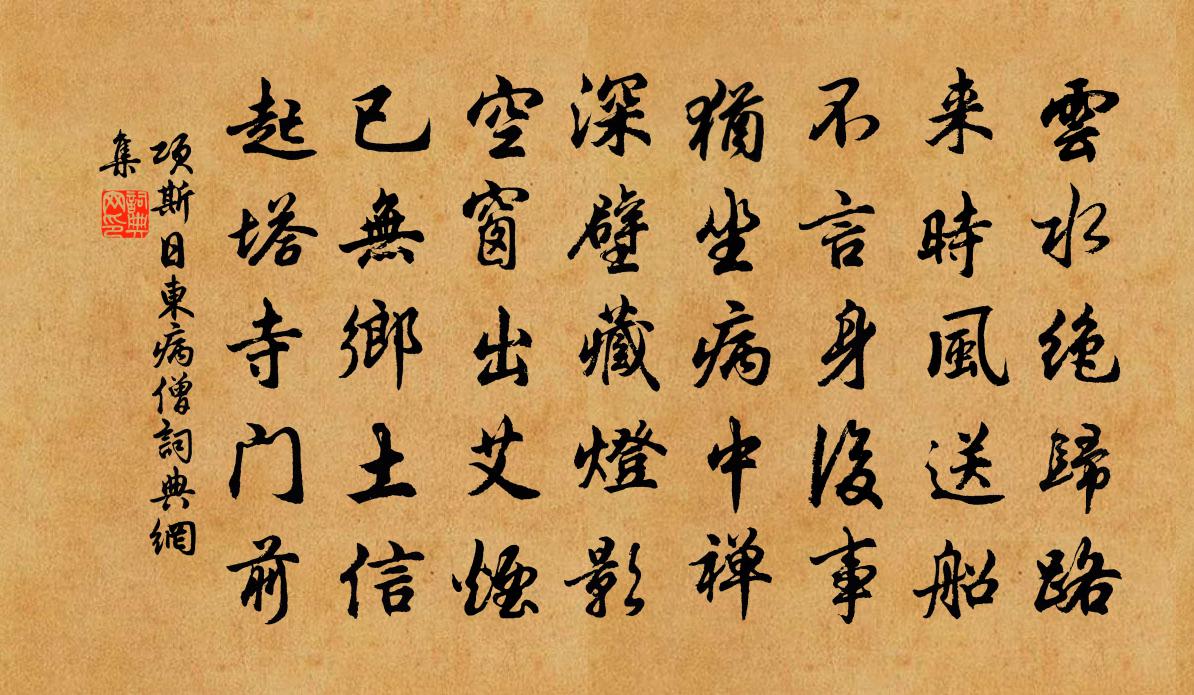 雲水絶歸路
来時風送船
不言身後事
猶坐病中禅
深壁藏燈影
空窗出艾煙
已無鄉土信
起塔寺门前
项斯日東病僧詞典網
集
詞典
网印